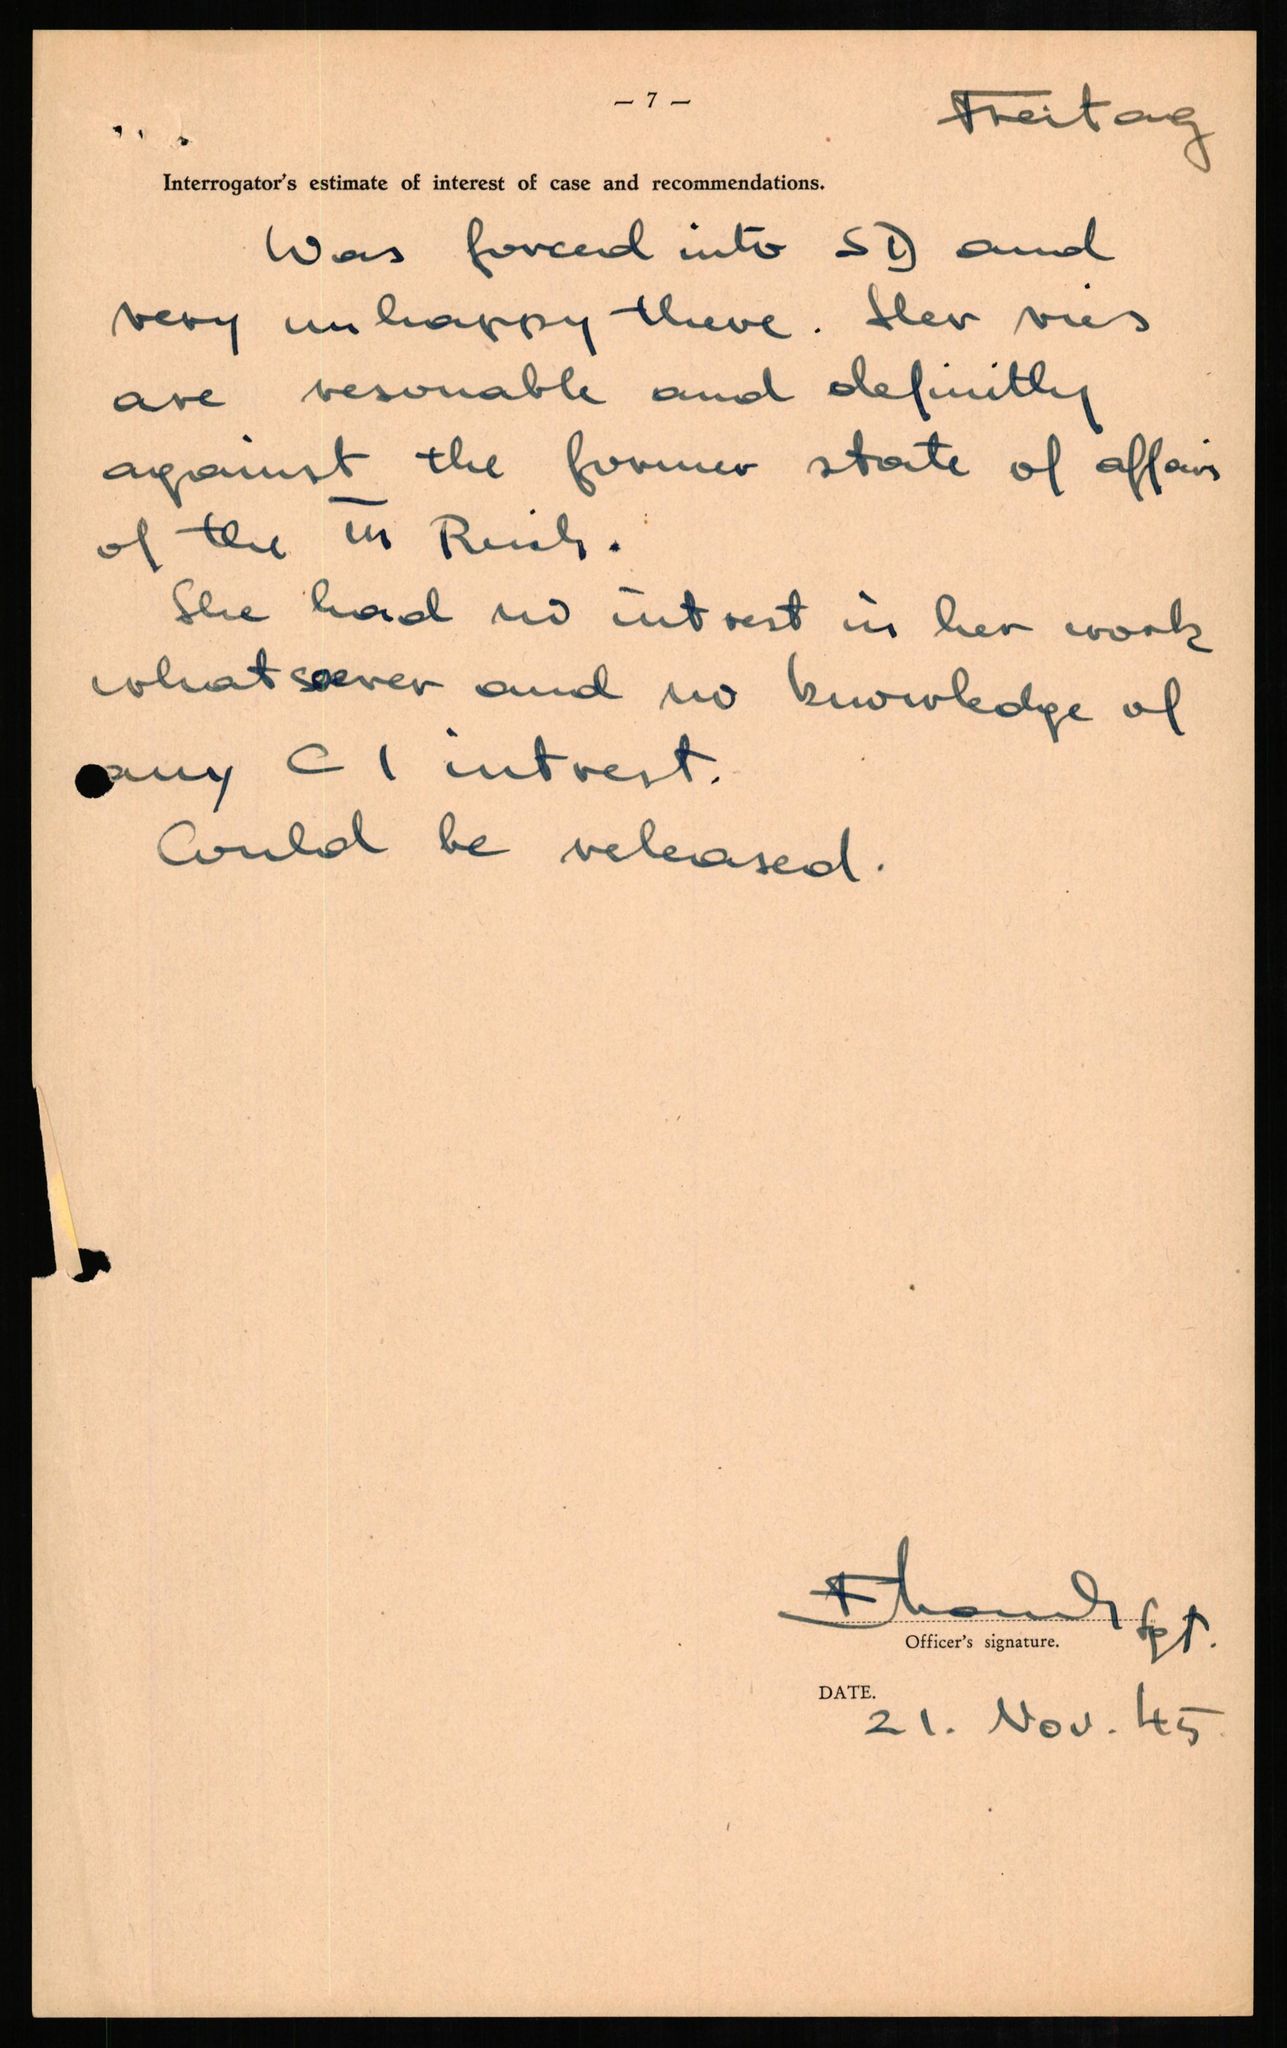 – 7 –
Freitag
Interrogator's estimate of interest of case and recommendations.
Was forced into SD and
very unhappy there. Her vies
are resonable and definitly
against the former state of affairs
of the III Reich.
She had no intrest in her work
whatsoever and no knowledge of
any CI intrest.
Could be released.
Sgt.
Officer's signature.
DATE.
21. Nov. 45.